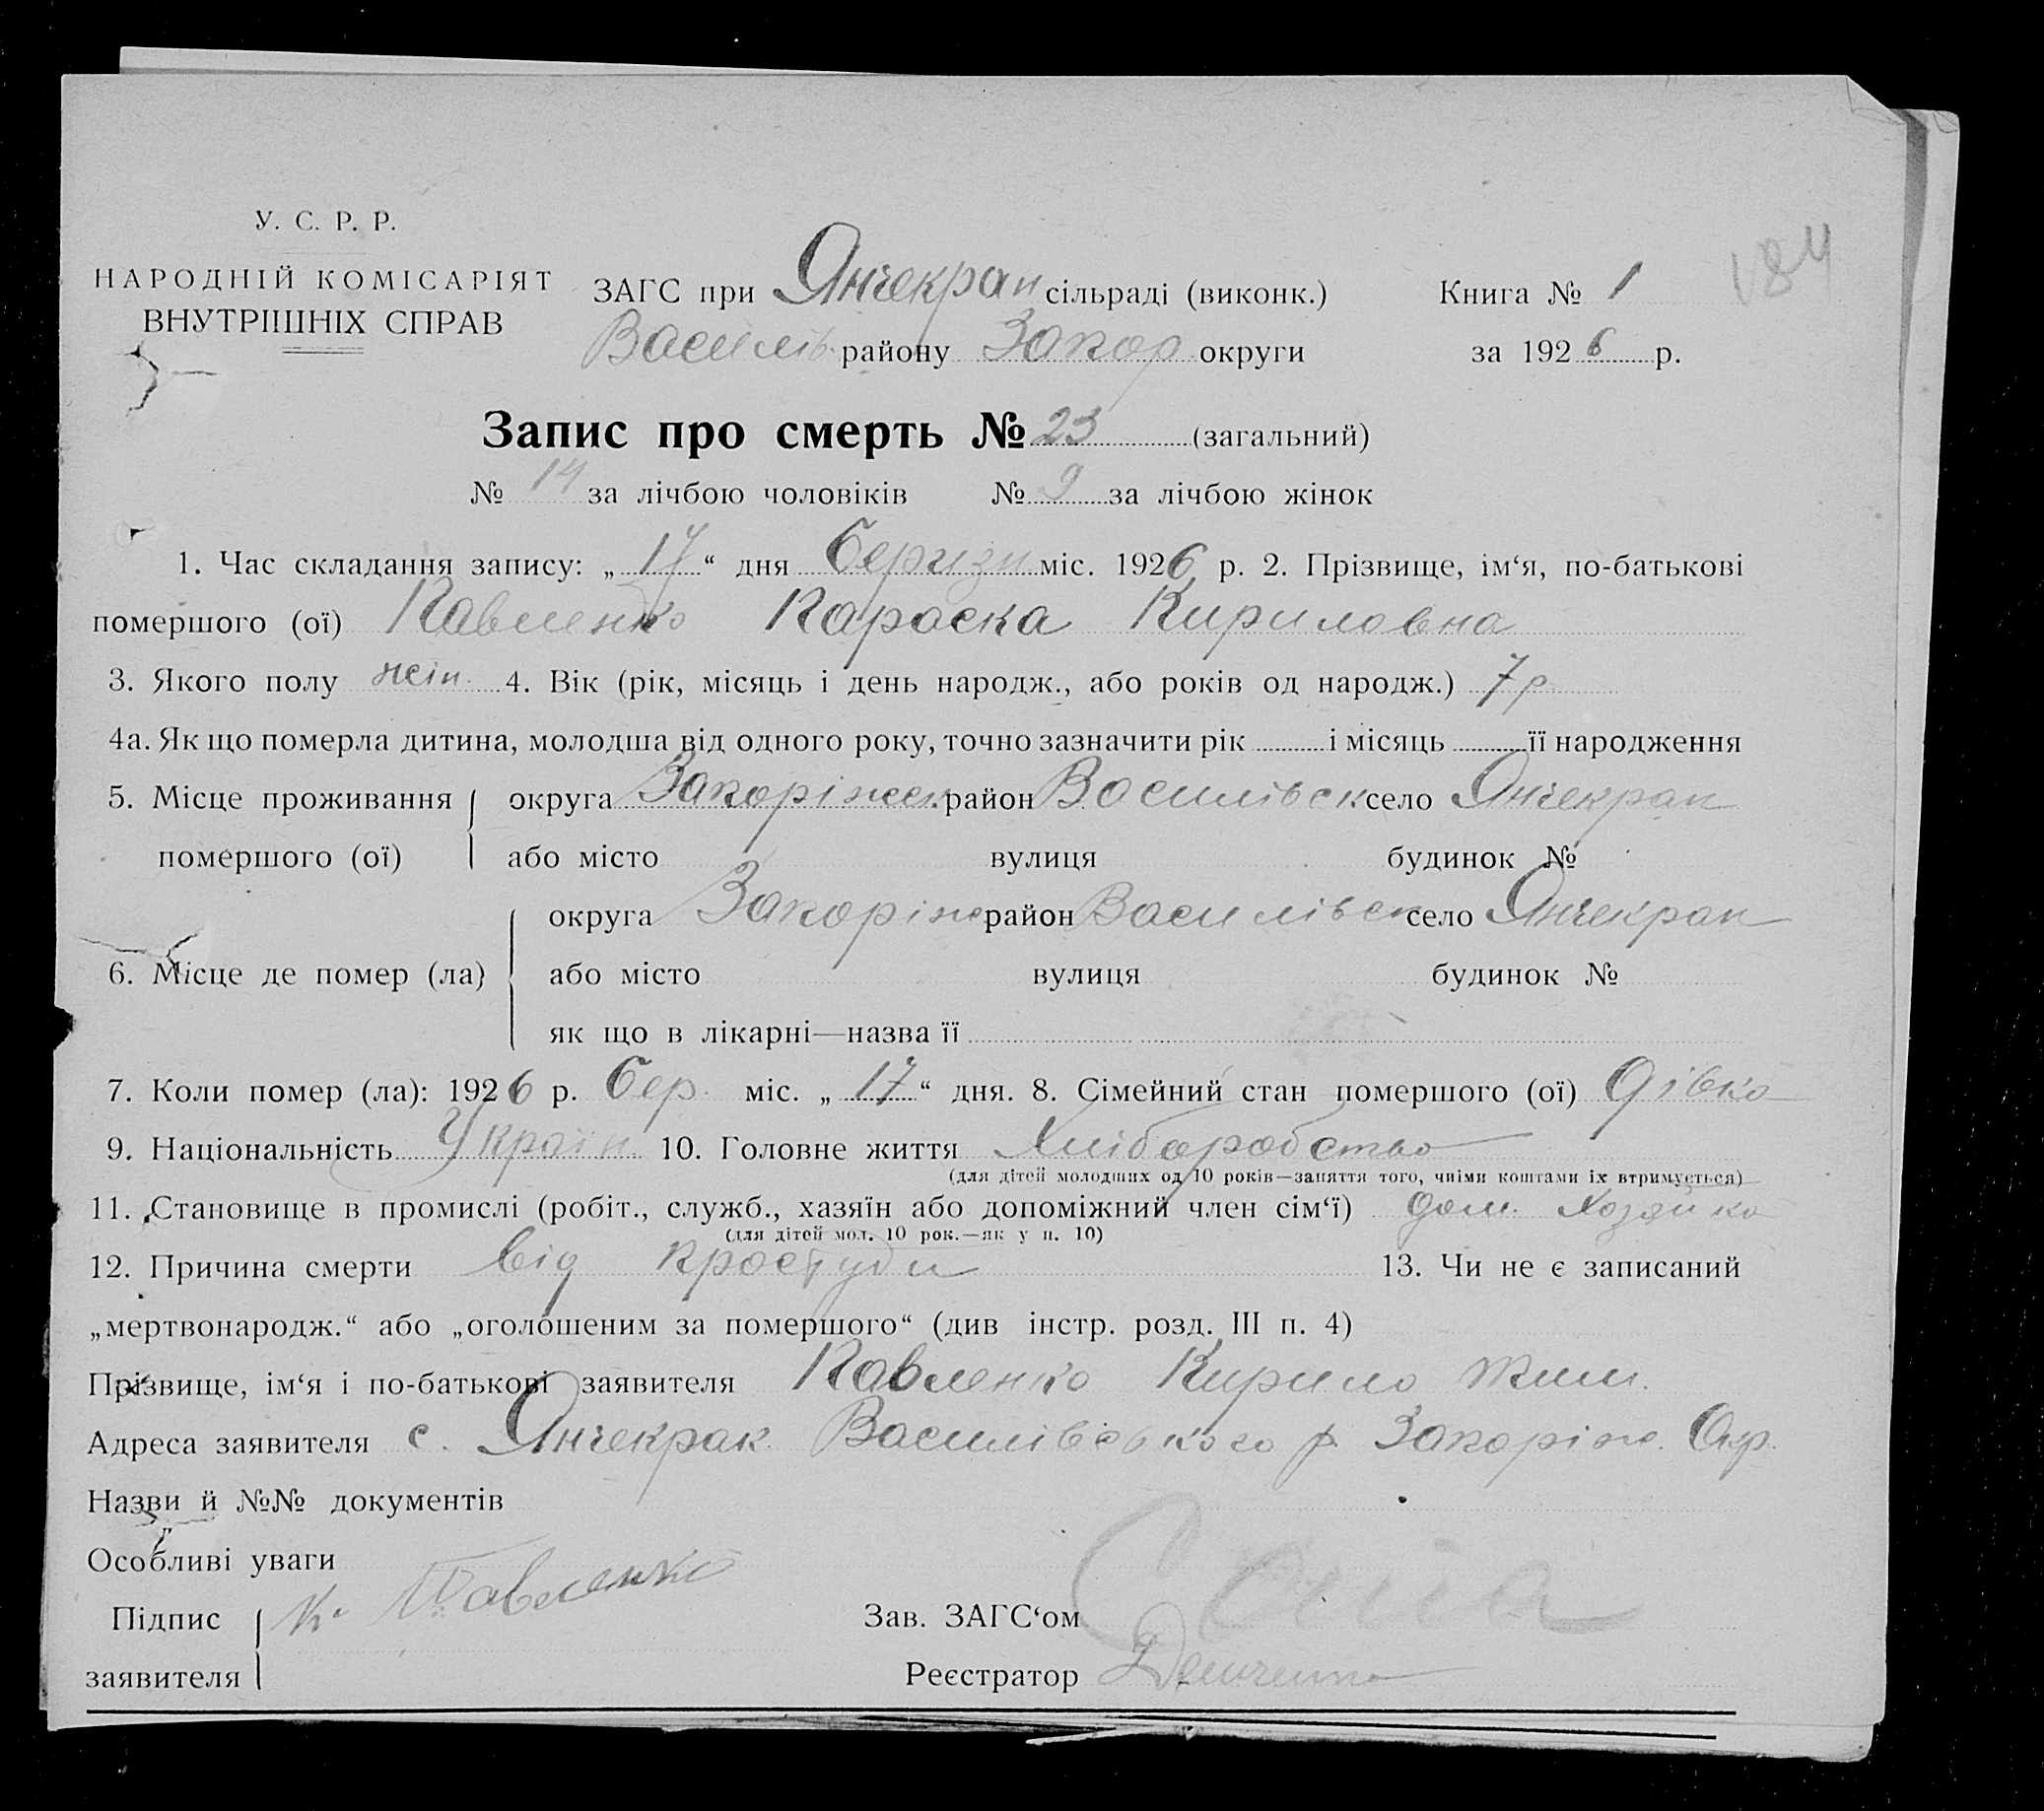 184
У. С. Р. Р.
НАРОДНІЙ КОМІСАРІЯТ
ВНУТРІШНІХ СПРАВ
ЗАГС при Янчекрак сільраді (виконк.) Книга № 1
Василів. району Запор округи за 1926 р.
Запис про смерть № 23 (загальний)
№ 14 за лічбою чоловіків № 9 за лічбою жінок
1. Час складання запису: „17“ дня міс. 1926 р. 2. Прізвище, ім‘я, по-батькові
помершого (ої) Павленко Параска Кириловна
3. Якого полу жін. 4. Вік (рік, місяць і день народж., або років од народж.) 7 р
4а. Як що померла дитина, молодша від одного року, точно зазначити рік і місяць її народження
5. Місце проживання округа Запоріжськ район Василівськ село Янчекрак
помершого (ої) або місто вулиця будинок №
округа Запоріж район Василівск село Янчекрак
6. Місце де помер (ла) або місто вулиця будинок №
як що в лікарні—назва її
7. Коли помер (ла): 1926 р. бер. міс. „17“ дня. 8. Сімейний стан помершого (ої) дівка
9. Національність Україн 10. Головне життя Хліборобство
(для дітей молодших од 10 років—заняття того, чиїми коштами їх втримується)
11. Становище в промислі (робіт., служб., хазяїн або допоміжний член сім‘ї) дом. хозяйка
(для дітей мол. 10 рок.—як у п. 10)
12. Причина смерти від простуди 13. Чи не є записаний
„мертвонародж.“ або „оголошеним за помершого“ (див інстр. розд. III п. 4)
Прізвище, ім‘я і по-батькові заявителя Павленко Кирило Тим.
Адреса заявителя с. Янчекрак Василівського р. Запоріж. Окр.
Назви й №№ документів
Особливі уваги
Підпис К. Павленко Зав. ЗАГС‘ом
заявителя Реєстратор